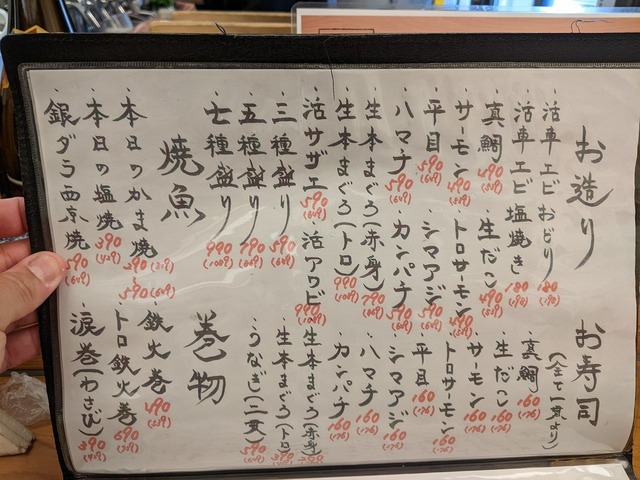 お造り
・活車エビおどり 180 (198)
・活車エビ塩焼き 180 (198)
・真鯛 490 (539)
・生だこ 490 (539)
・サーモン 490 (539)
・トロサーモン 490 (539)
・平目 590 (649)
・シマアジ 590 (649)
・ハマチ 590 (649)
・カンパチ 590 (649)
・生本まぐろ(赤身) 790 (869)
・生本まぐろ(トロ) 990 (1089)
・活サザエ 590 (649)
・活アワビ 990
・三種盛り 590 (649)
・五種盛り 790 (869)
・七種盛り 990 (1089)
焼魚
・本日のかま焼 290 (319) 590 (649)
・本日の塩焼 390 (429)
・銀ダラ西京焼 590 (649)
お寿司
(全て一貫より)
・真鯛 160 (176)
・生だこ 160 (176)
・サーモン 160 (176)
・トロサーモン 160 (176)
・平目 160 (176)
・シマアジ 160 (176)
・ハマチ 160 (176)
・カンパチ 160 (176)
・生本まぐろ(赤身)
・生本まぐろ(トロ)
・うなぎ(二貫) 590 (649)
巻物
・鉄火巻 490 (539)
・トロ鉄火巻 690
・涙巻(わさび) 390 (429)